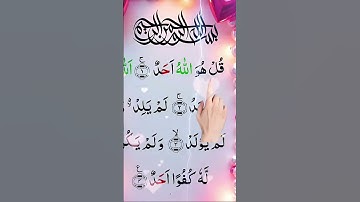 بسم الله الرحمن الرحيم
قُلْ هُوَ اللّٰهُ اَحَدٌ ۚ‏﴿۱﴾ اَللّٰ
لَمْ يَلِدْ ۙ
لَمْ يُوْلَدْ ۙ‏﴿۳﴾ وَلَمْ يَكُ
لَّهٗ كُفُوًا اَحَدٌ ‏﴿۴﴾